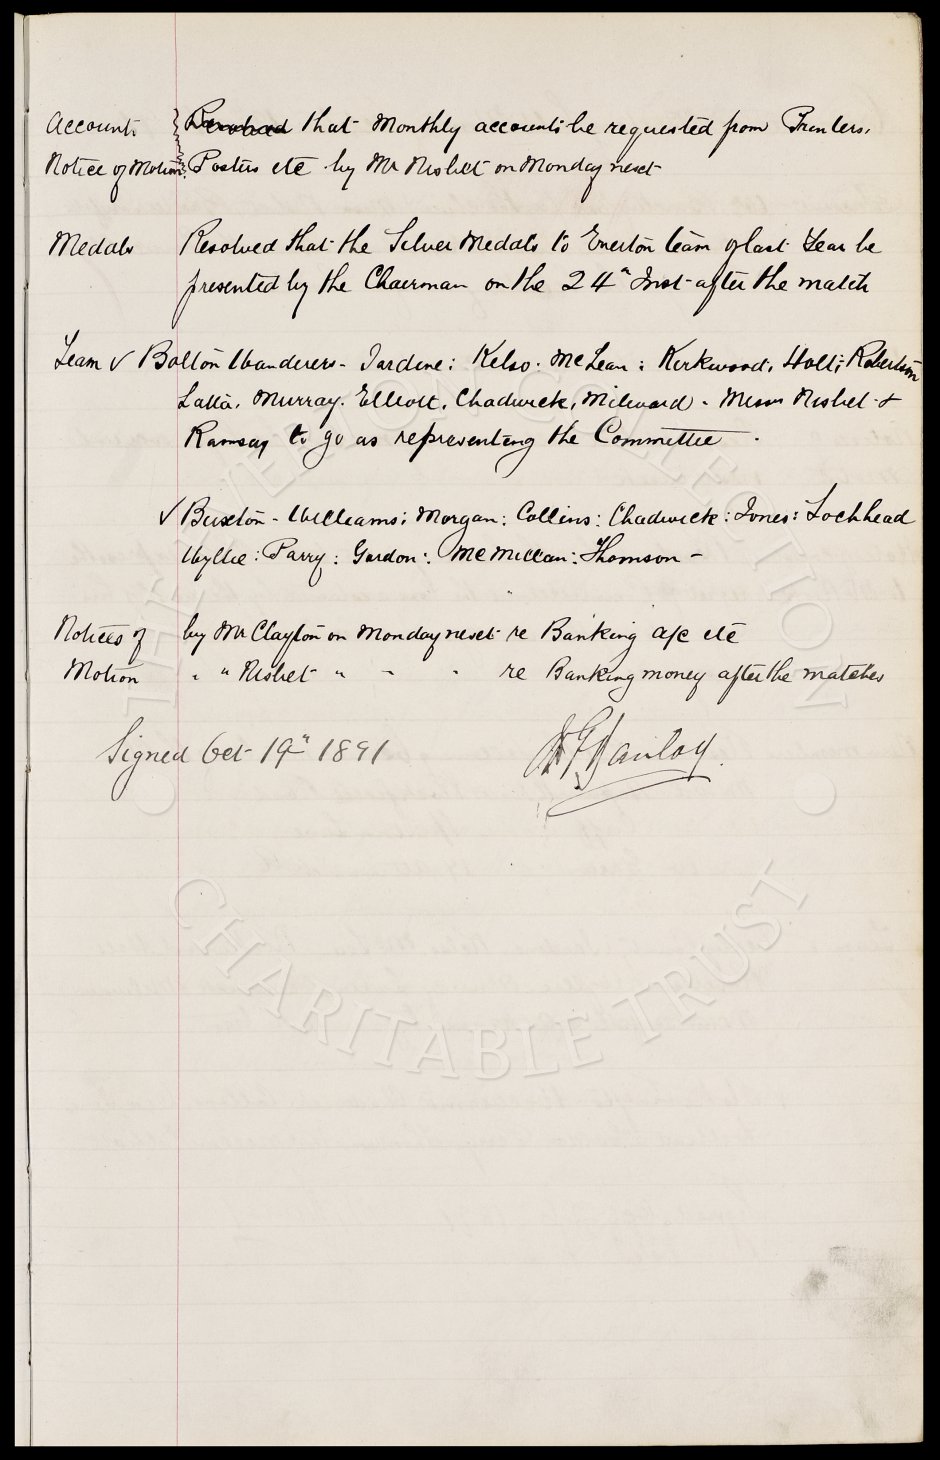 Accounts ~~Resolved~~ that Monthly accounts be requested from Printers,
Notice of Motion. Posters etc by Mr Nisbet on Monday next
Medals Resolved that the Silver Medals to Everton team of last Year be
presented by the Chairman on the 24th Inst after the match
Team v Bolton Wanderers - Jardine: Kelso. McLean: Kirkwood, Holt: Robertson
Latta. Murray. Elliott. Chadwick, Milward. Messrs Nisbet &
Ramsay to go as representing the Committee.
v Buxton - Williams: Morgan: Collins: Chadwick: Jones: Lochhead
Wyllie: Parry: Gordon: McMillan: Thomson -
Notices of by Mr Clayton on Monday next re Banking a/c etc
Motion " " Nisbet " - " re Banking money after the matches
Signed Oct 19th 1891
EVERTON COLLECTION
CHARITABLE TRUST